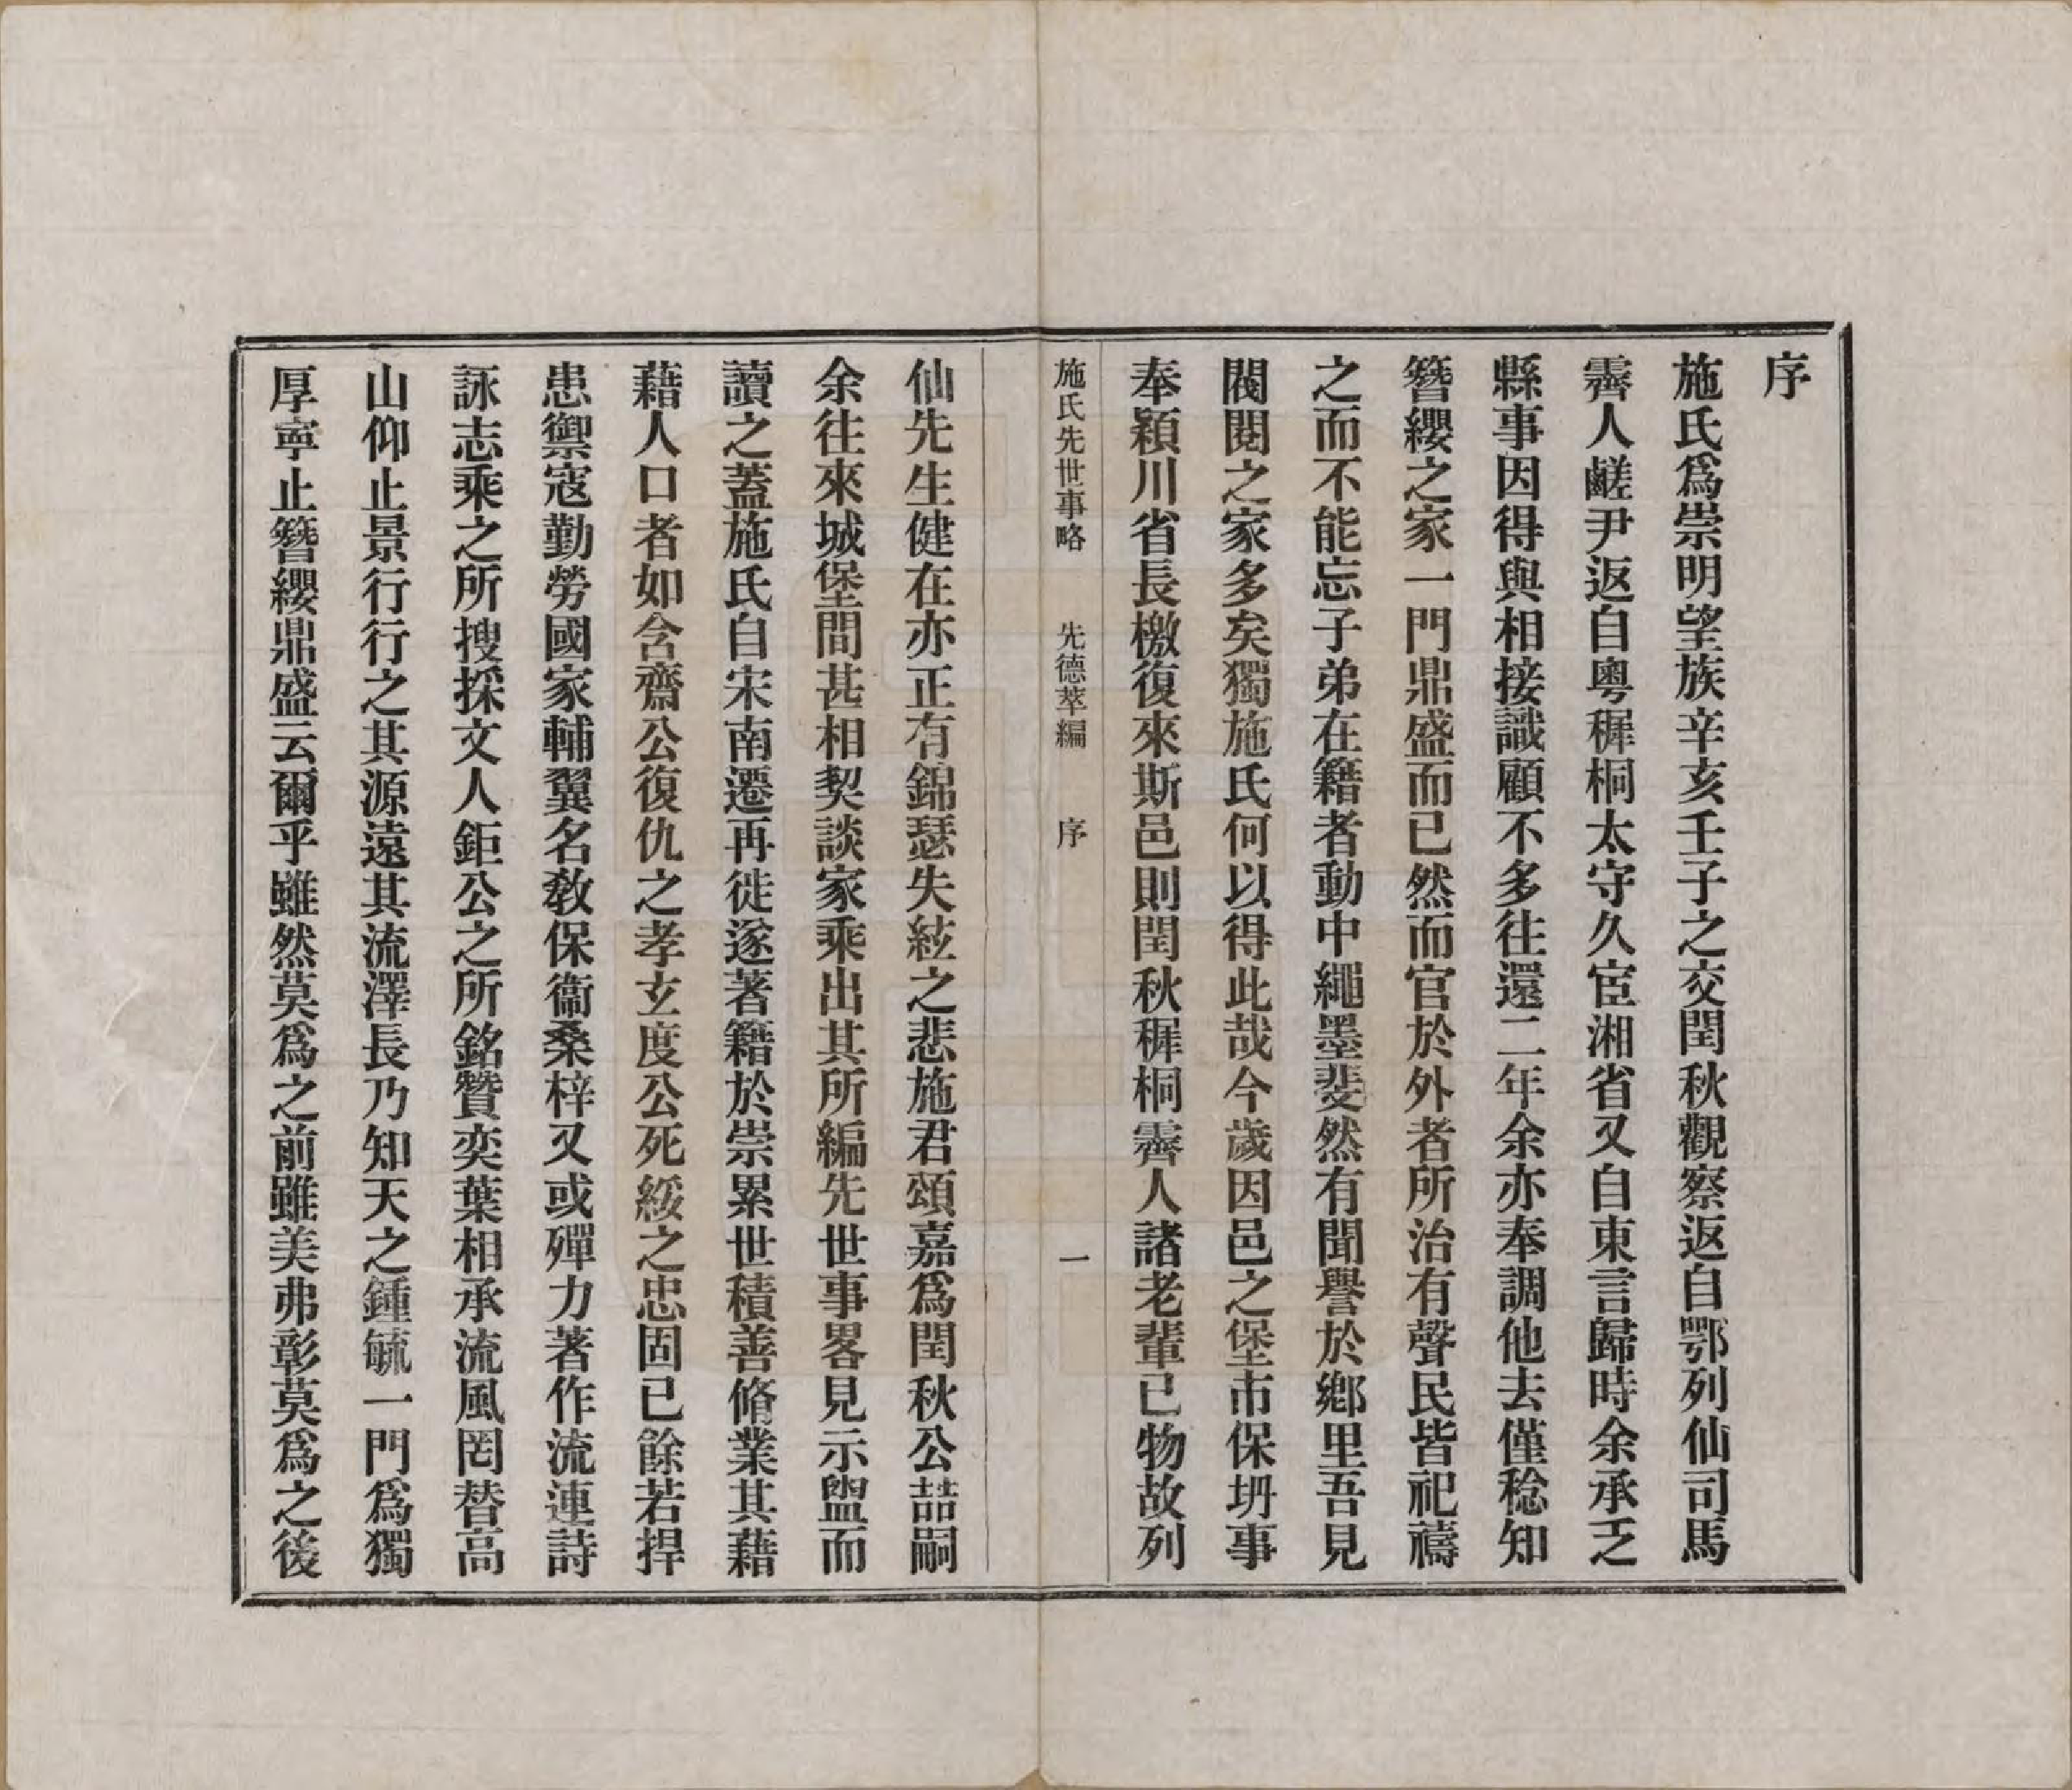 序
施氏爲崇明望族辛亥壬子之交閏秋觀察返自鄂列仙司馬
霽人鹺尹返自粵穉桐太守久宦湘省又自東言歸時余承乏
縣事因得與相接識顧不多往還二年余亦奉調他去僅稔知
簪纓之家一門鼎盛而已然而官於外者所治有聲民皆祀禱
之而不能忘子弟在籍者動中繩墨斐然有聞譽於鄉里吾見
閥閱之家多矣獨施氏何以得此哉今歲因邑之堡市保坍事
奉穎川省長檄復來斯邑則閏秋穉桐霽人諸老輩已物故列
施氏先世事略　先德萃編　序　一
仙先生健在亦正有錦瑟失絃之悲施君頌嘉爲閏秋公喆嗣
余往來城堡間甚相契談家乘出其所編先世事畧見示盥而
讀之蓋施氏自宋南遷再徙遂著籍於崇累世積善脩業其藉
藉人口者如含齋公復仇之孝玄度公死綏之忠固已餘若捍
患禦寇勤勞國家輔翼名教保衞桑梓又或殫力著作流連詩
詠志乘之所搜採文人鉅公之所銘贊奕葉相承流風罔替高
山仰止景行行之其源遠其流澤長乃知天之鍾毓一門爲獨
厚寧止簪纓鼎盛云爾乎雖然莫爲之前雖美弗彰莫爲之後